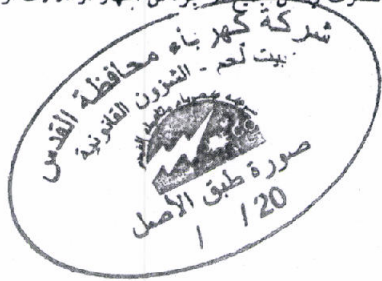 شركة كهرباء محافظة القدس
بيت لحم - الشؤون القانونية
صورة طبق الأصل
/ /20